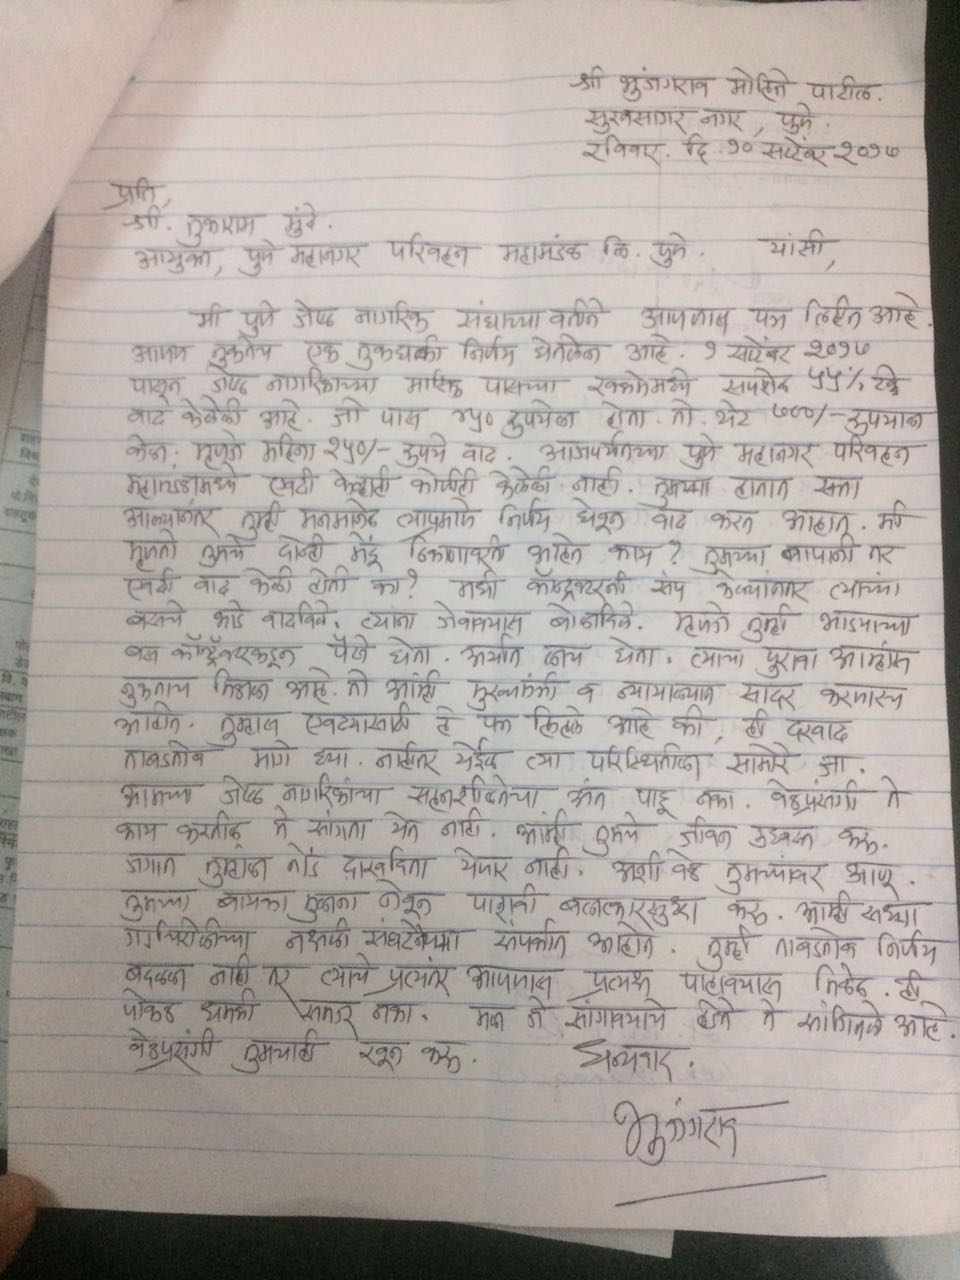 श्री भुजंगराव मोहिते पाटील.
सुखसागर नगर, पुणे.
रविवार. दि. १० सप्टेंबर २०१७
प्रति,
श्री. तुकाराम मुंढे.
आयुक्त, पुणे महानगर परिवहन महामंडळ लि. पुणे. यांसी,
मी पुणे जेष्ठ नागरिक संघाच्या वतीने आपणास पत्र लिहित आहे.
आपण नुकतेच एक तुकलघकी निर्णय घेतलेला आहे. १ सप्टेंबर २०१७
पासून जेष्ठ नागरिकांच्या मासिक पासच्या रक्कमेमध्ये सपशेल ५५% टक्के
वाढ केलेली आहे. जो पास ४५० रुपयेला होता तो थेट ७००/- रुपयाला
केला. म्हणजे महिना २५०/- रुपये वाढ. आजपर्यंतच्या पुणे महानगर परिवहन
महामंडळामध्ये एवढी केव्हाही कोणीही केलेली नाही. तुमच्या हातात सत्ता
आल्यानंतर तुम्ही मनमानेल त्याप्रमाणे निर्णय घेवून वाढ करत आहात. मी
म्हणतो तुमचे दोन्ही मेंदू ठिकाणावरती आहेत काय? तुमच्या बापानी तर
एवढी वाढ केली होती का? मध्ये कॉन्ट्रॅक्टरनी संप केल्यानंतर त्याच्या
बसचे भाडे वाढविले. त्याना जेवावयास बोलविले. म्हणजे तुम्ही भाडयाच्या
बस कॉन्ट्रॅक्टरकडून पैसे घेता. अर्थात लाच घेता. त्याचा पुरावा आम्हांस
नुकताच मिळाला आहे. तो आम्ही मुख्यमंत्री व न्यायालयात सादर करणारच
आहोत. तुम्हास एवढ्यासाठी हे पत्र लिहिले आहे की, ही दरवाढ
ताबडतोब मागे घ्या. नाहीतर येईल त्या परिस्थितीला सामोरे जा.
आमच्या जेष्ठ नागरिकांच्या सहनशीलतेचा अंत पाहू नका. वेळप्रसंगी ते
काय करतील ते सांगता येत नाही. आम्ही तुमचे जीवन उध्वस्त करू.
जगात तुम्हाला तोंड दाखविता येणार नाही. अशी वेळ तुमच्यावर आणू.
तुमच्या बायका मुलाना नेवून पाशवी बलात्कारसुध्दा करू. आम्ही सध्या
गडचिरोलीच्या नक्षली संघटनेच्या संपर्कात आहोत. तुम्ही ताबडतोब निर्णय
बदलला नाही तर त्याचे प्रत्यंतर आपणास प्रत्यक्ष पाहावयास मिळेल. ही
पोकळ धमकी समजू नका. मला जे सांगावयाचे होते ते सांगितले आहे.
वेळप्रसंगी तुमचाही खून करू. धन्यवाद.
भुजंगराव